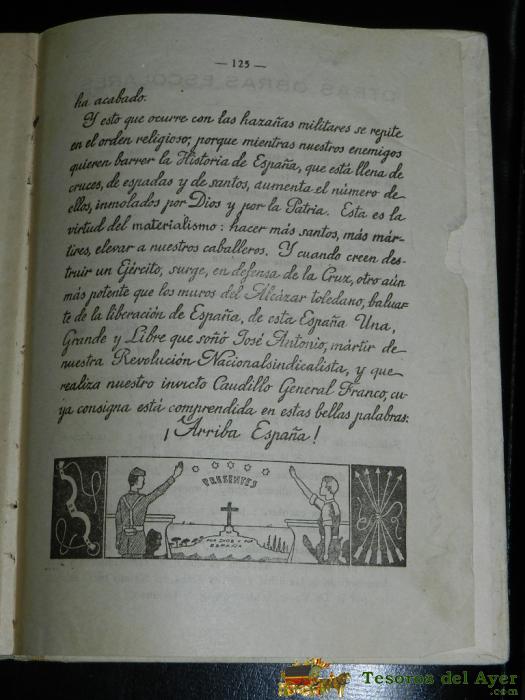 — 125 —
ha acabado.
Y esto que ocurre con las hazañas militares se repite
en el orden religioso, porque mientras nuestros enemigos
quieren barrer la Historia de España, que está llena de
cruces, de espadas y de santos, aumenta el número de
ellos, inmolados por Dios y por la Patria. Esta es la
virtud del materialismo: hacer más santos, más már-
tires, elevar a nuestros caballeros. Y cuando creen des-
truir un Ejército, surge, en defensa de la Cruz, otro aún
más potente que los muros del Alcázar toledano, baluar-
te de la liberación de España, de esta España Una,
Grande y Libre que soñó José Antonio, mártir de
nuestra Revolución Nacionalsindicalista, y que
realiza nuestro invicto Caudillo General Franco, cu-
ya consigna está comprendida en estas bellas palabras:
¡Arriba España!
PRESENTES
POR DIOS Y POR
ESPAÑA
Tesoros del Ayer
.com